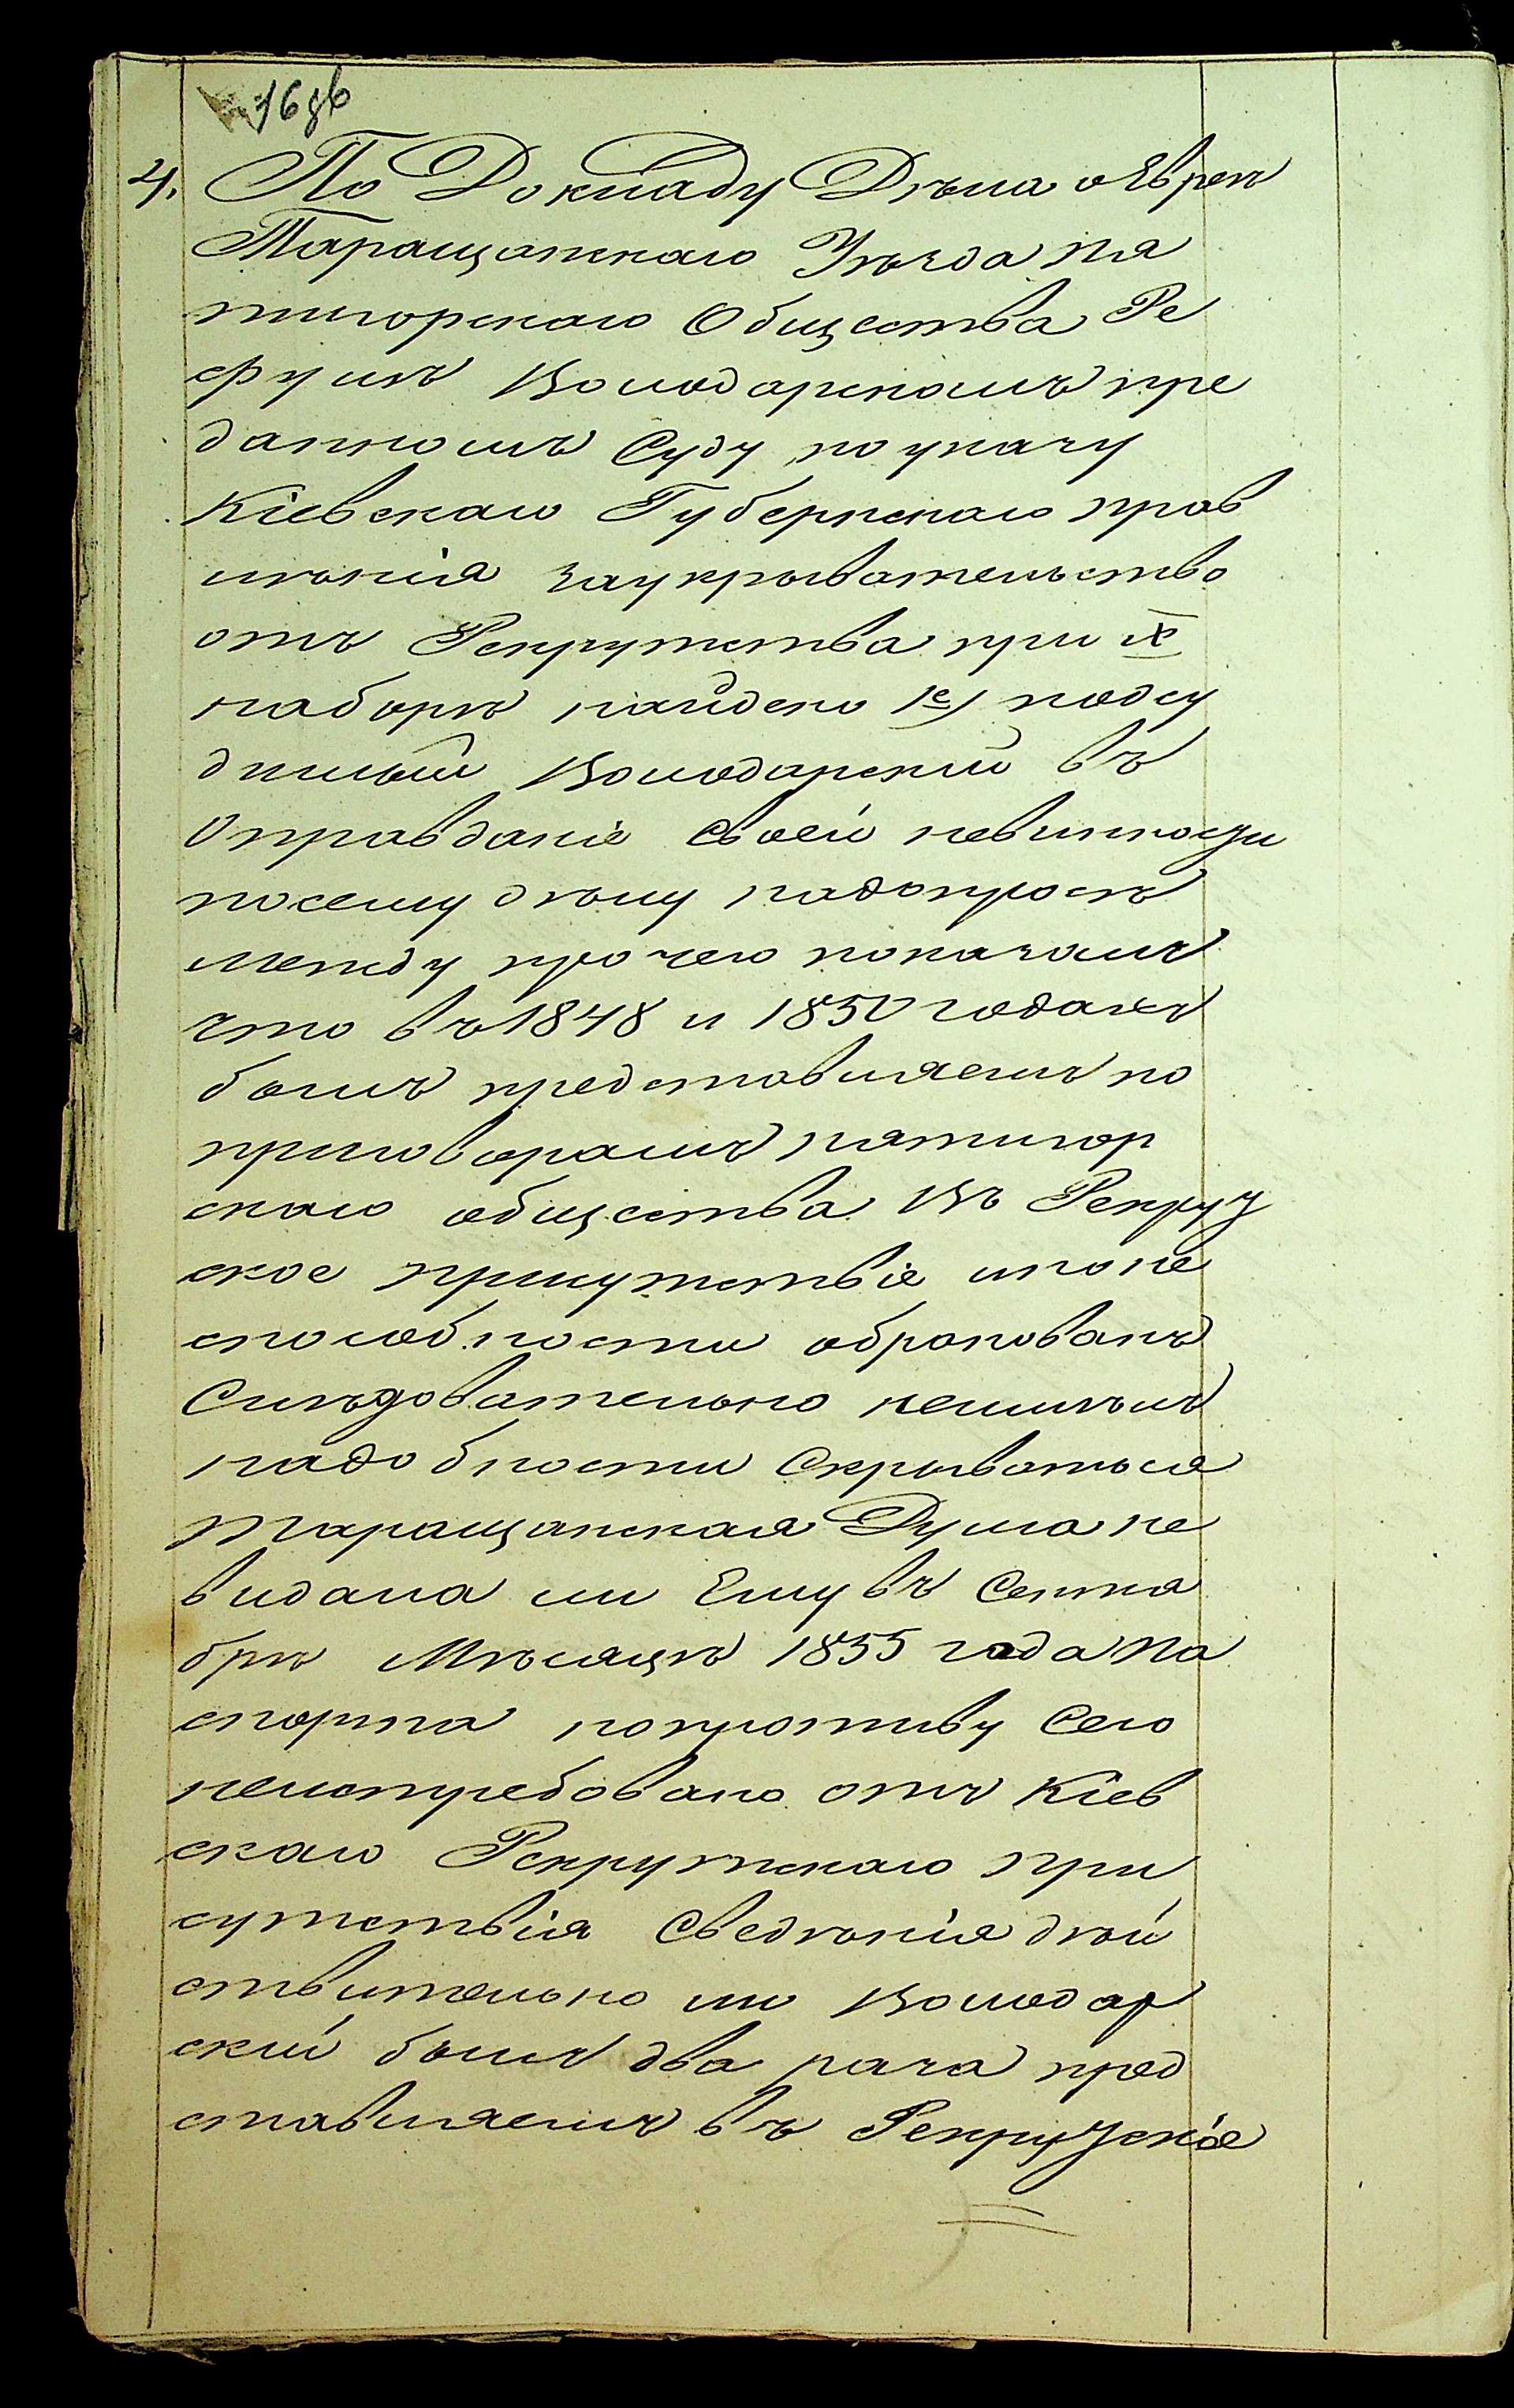 168б
4. По Докладу Дѣла о Евреѣ
Таращанскаго Уѣзда пя
тигорскаго Общества Ре
фулѣ Володарскомъ пре
данномъ Суду по указу
Кіевскаго Губернскаго прав
ленія за укрывательство
отъ Рекрутства при X
наборѣ найдено 1е) подсу
димый Володарский въ
Оправданіе Своей невинности
посему дѣлу надопросѣ
между прочего показалъ
что въ 1848 и 1850 годахъ
былъ представляемъ по
приговорамъ пятигор
скаго общества Въ Рекрут
ское присутствіе ипоне
способности обракованъ
Слѣдовательно неимѣлъ
надобности Скрыватьса
таращанская Дума не
видала ли Ему въ Сентя
брѣ Мѣсяцѣ 1855 года па
спорта напротивъ Сего
неистребовано отъ Кіев
скаго Рекрутскаго при
сутствія Сведѣнія дѣй
ствительно ли Володар
ский былъ два раза пред
ставляемъ въ Рекрутское